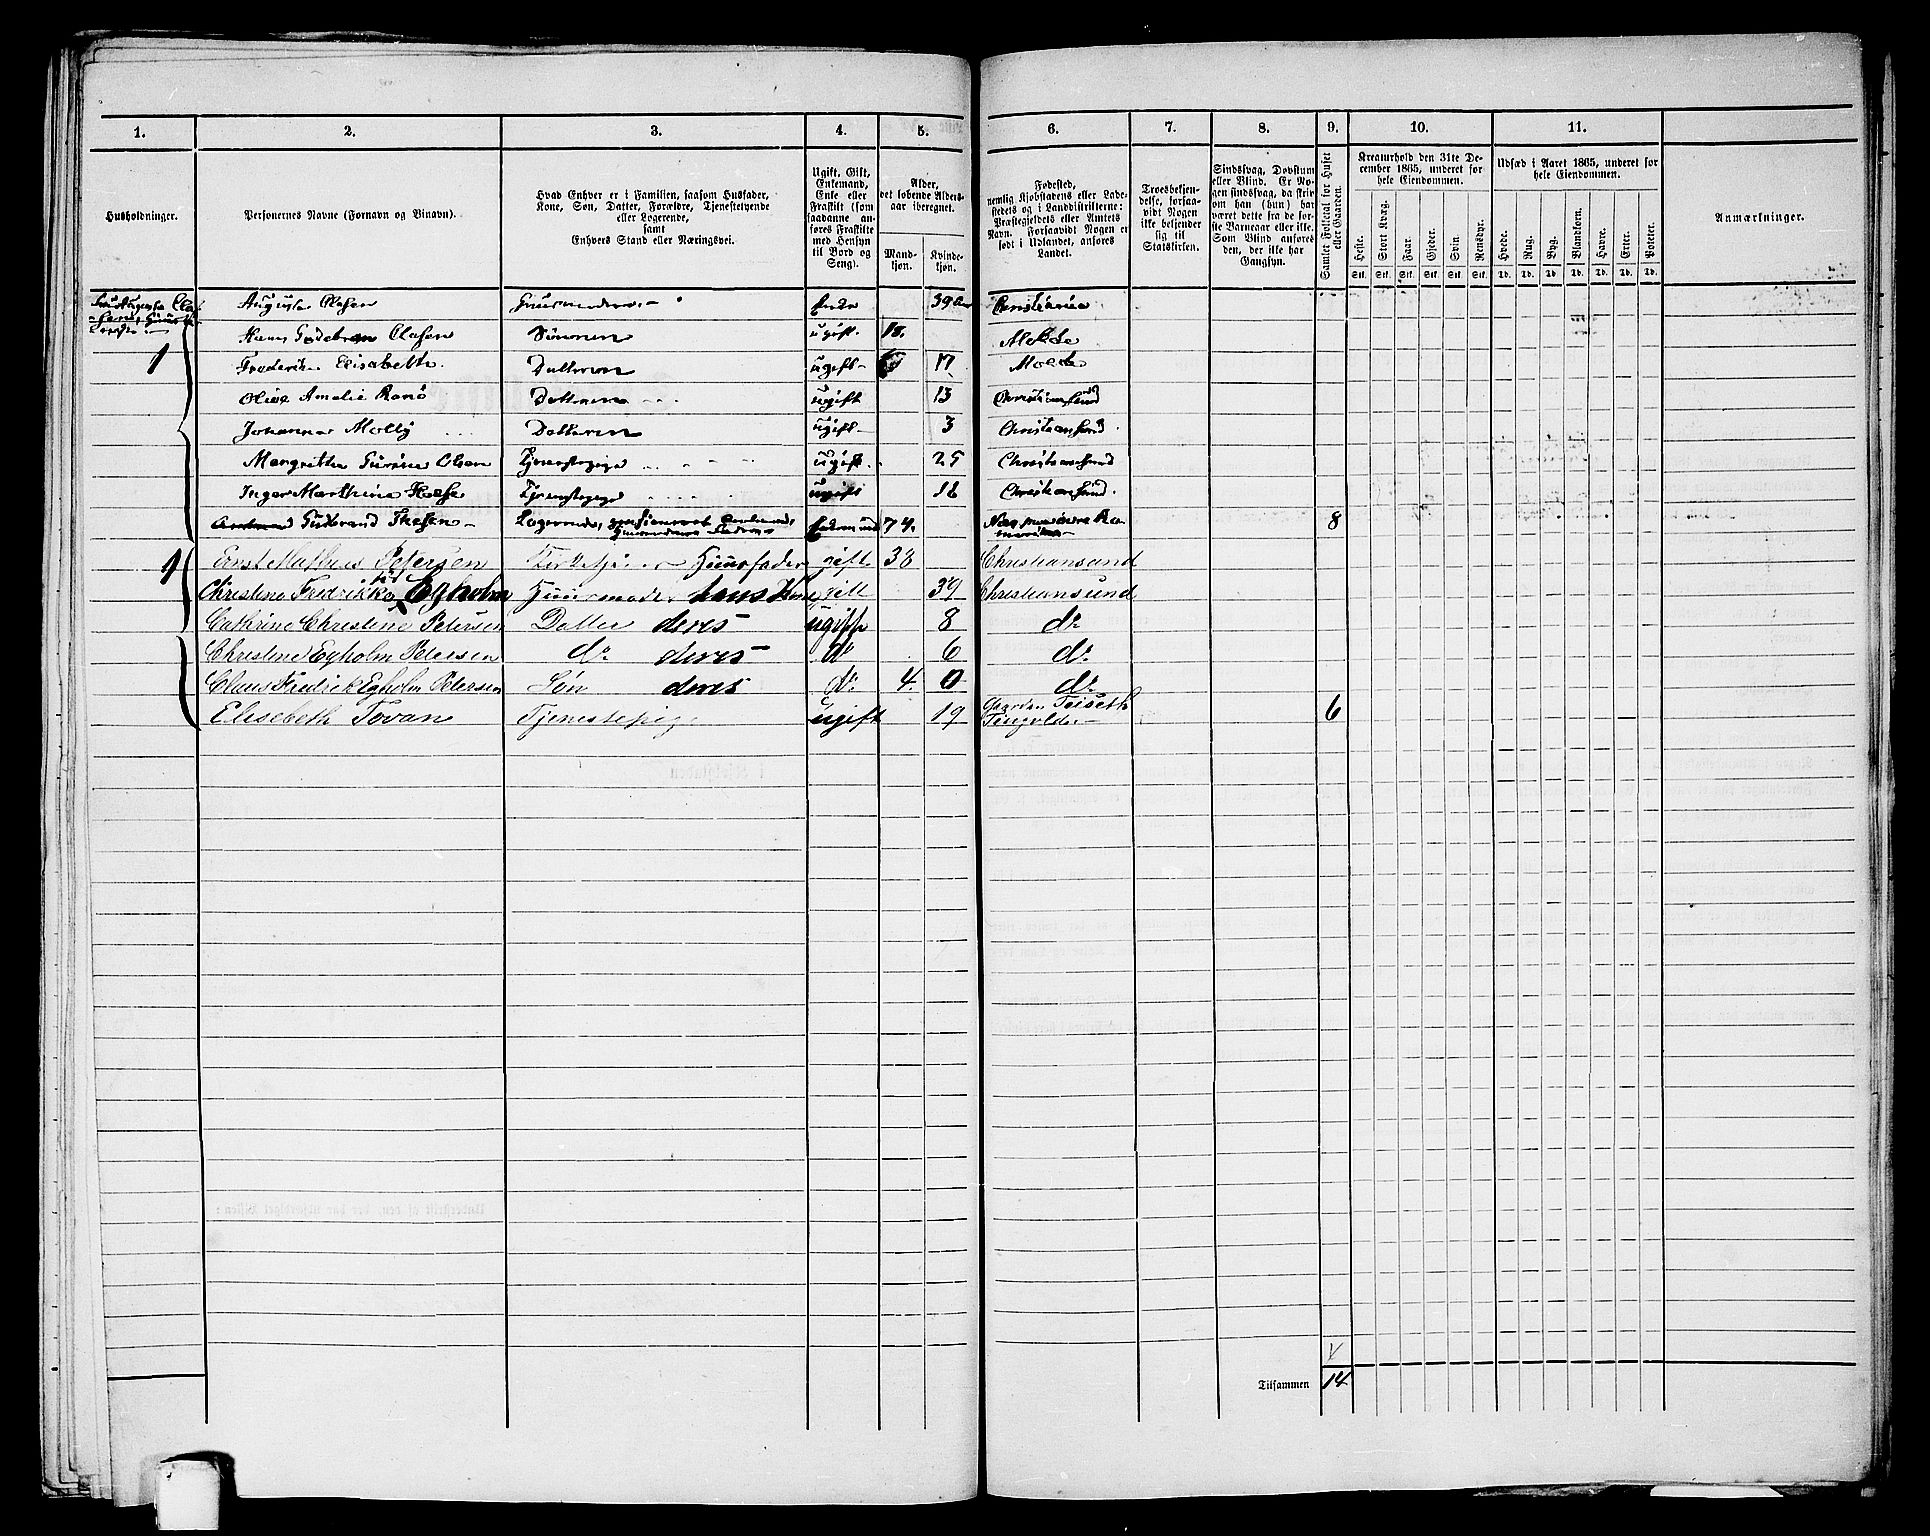 1. 2. 3. 4. 5. 6. 7. 8. 9. 10. 11.
Husholdninger.
Personernes Navne (Fornavn og Vinavn).
Hvad Enhver er i Familien, saasom Husfader,
Kone, Søn, Datter, Forældre, Tjenestetyende
eller Logerende,
samt
Enhvers Stand eller Næringsvei.
Ugift, Gift,
Enkemand,
Enke eller
Fraskilt (som
saadanne an-
føres Fraskilte
med Hensyn
til Bord og
Seng).
Alder,
det løbende Alders-
aar iberegnet.
Mand-
kjøn.
Kvinde-
kjøn.
Fødested,
nemlig Kjøbstadens eller Lade-
stedets og i Landdistrikterne:
Præstegjeldets eller Amtets
Navn. Forsaavidt Nogen er
født i Udlandet, anføres
Landet.
Troesbekjen-
delse, forsaa-
vidt Nogen
ikke bekjender
sig til
Statskirken.
Sindssvag, Døvstum
eller Blind. Er No-
gen sindssvag, da skriv
om han (hun) har
været dette fra de før-
ste Barneaar eller ikke.
Som Blind anføres
den, der ikke har
Gangsyn.
Samlet Folketal for Huset
eller Gaarden.
Kreaturhold den 31te De-
cember 1865, underet for
hele Eiendommen.
Heste. Stort Kvæg. Faar. Gjeder. Svin. Rensdyr.
Stk. Stk. Stk. Stk. Stk. Stk.
Udsæd i Aaret 1865, underet for
hele Eiendommen.
Hvede. Rug. Byg. Blandkorn. Havre. Erter. Poteter.
Td. Td. Td. Td. Td. Td. Td.
Anmærkninger.
Auguste Olafsen Huusmoder Enke 39 Christiania
Hans Gudbran Olafsen Sønnen ugift 18. Molde
1 Frederike Elisabeth Datteren ugift 17 Molde
Olive Amalie Datteren ugift 13 Christiansund
Johanna Molly Datteren ugift 3 Christiansund
Margrethe Gurine Olsen Tjenestepige ugift 25 Christiansund
Inger Marthine Tjenestepige ugift 18 Christiansund.
Gudbrand Thesen Logerende, pensioneret Enkemand 74. 8
1 Ernst Mathias Petersen Huusfader gift 38 Christiansund
Christine Fredrikke fød Egholm Huusmoder hans Kone gift 39 Christiansund
Cathrine Christine Petersen Datter deres ugift 8 do
Christine Egholm Petersen do deres do 6 do
Claus Fredrik Egholm Petersen Søn deres do 4. 0 do
Elisebeth Tovan Tjenestepige ugift 19 Gaarden Teiseth
Tingvold 6
Tilsammen 14